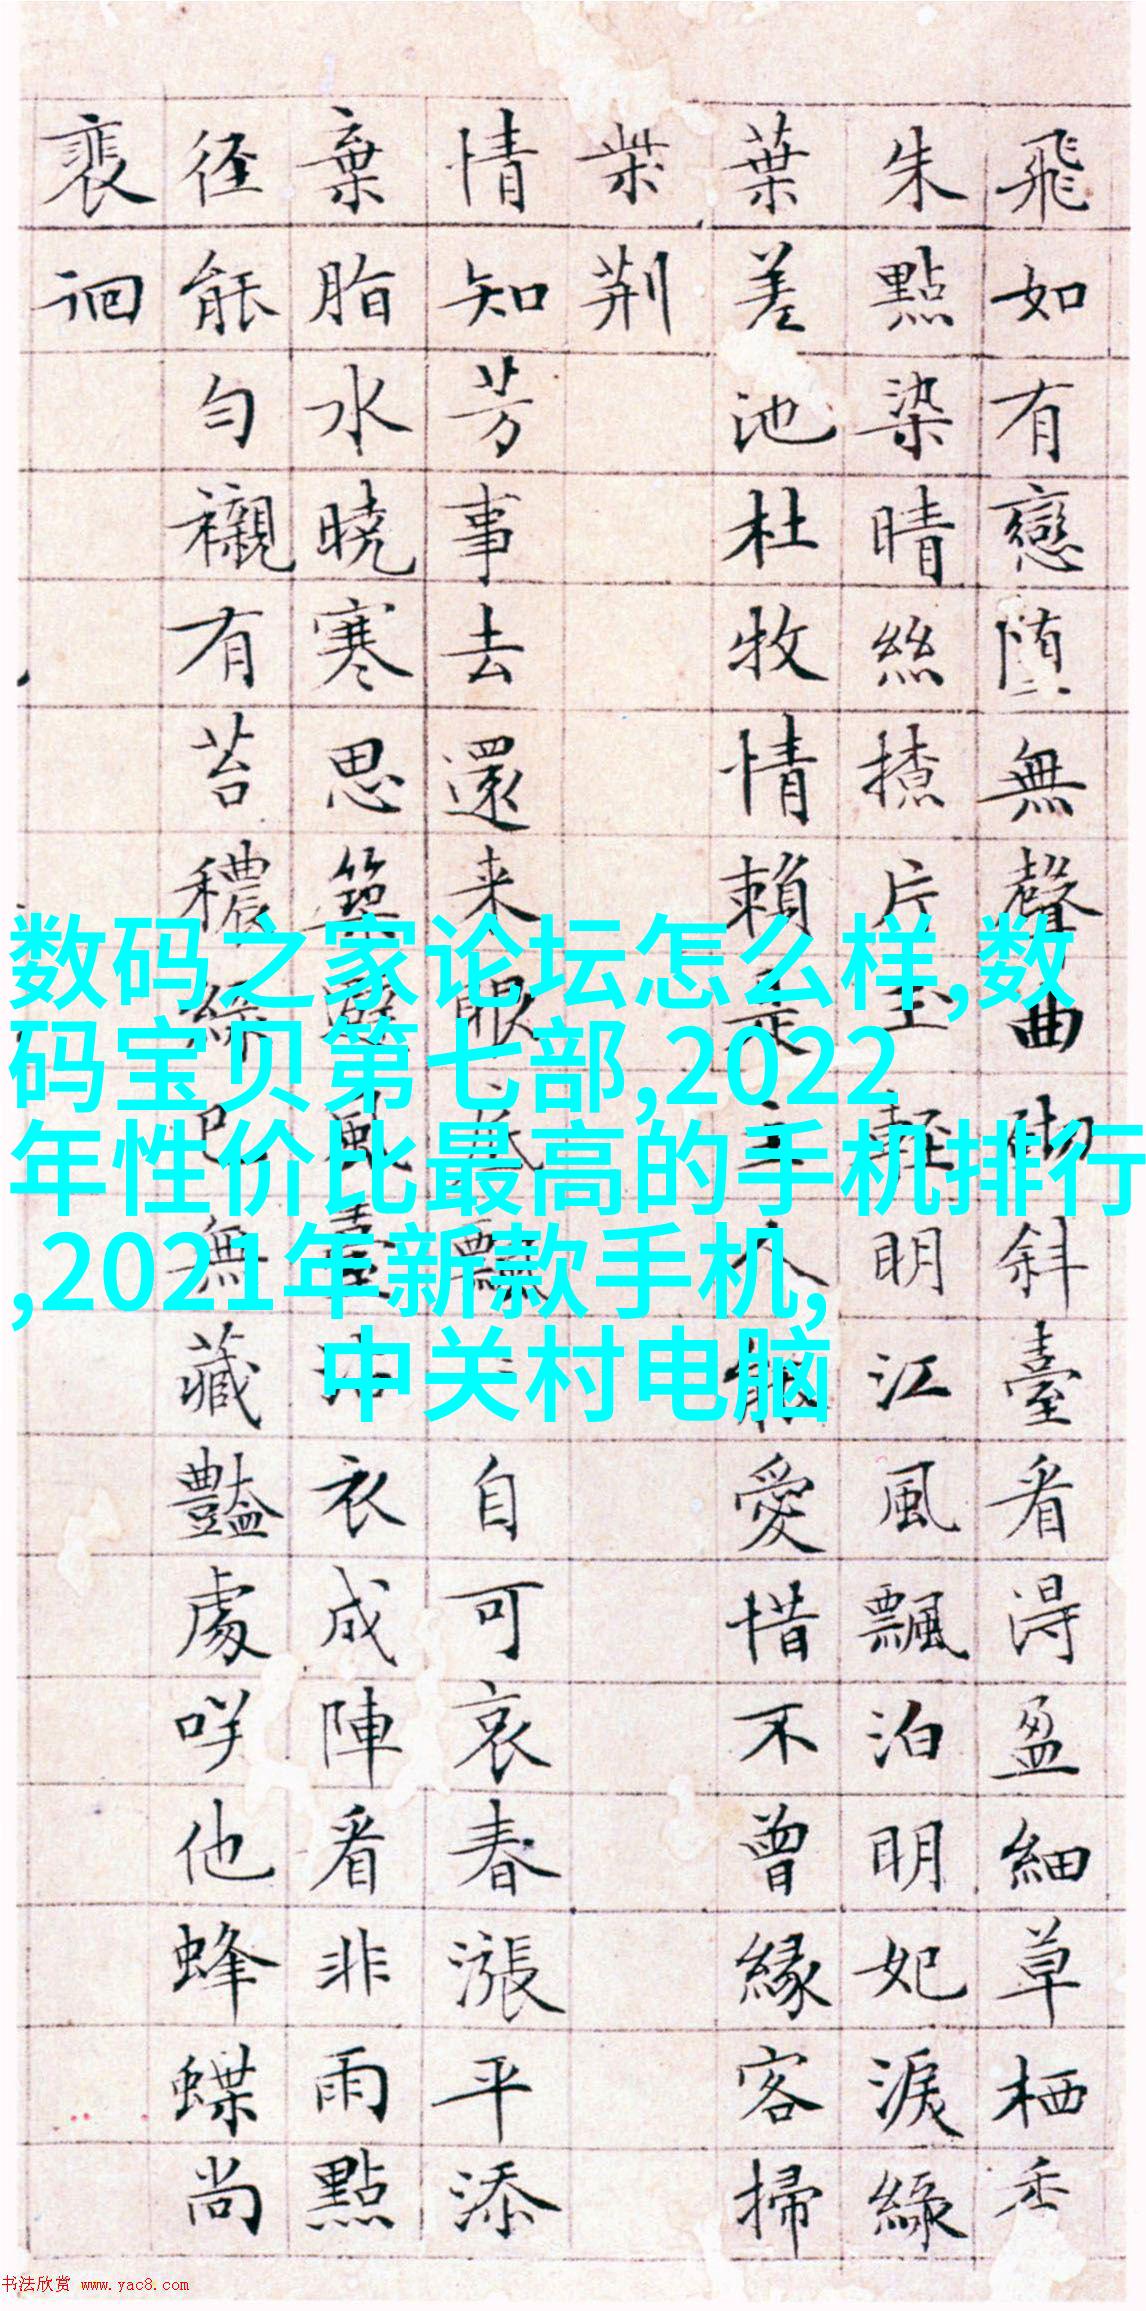 飛如有戀堕無聲曲砌斜臺看淂盈細草栖香
朱點染晴絲揸片玉輕明江風飄泊明妃淚綠
葉差池杜牧情賴是主人能愛惜不曾緣客掃
柴荆
情知芳事去還来眼底飄自可哀春漲平添
棄脂水曉寒思築避風臺沾衣成陣看非雨點
径能勻襯有苔穠綠巴無藏豔處咲他蜂蝶尚
裵徊
数码之家论坛怎么样,数
码宝贝第七部,2022
年性价比最高的手机排行
,2021年新款手机,
中关村电脑
书法欣赏 www.yac8.com